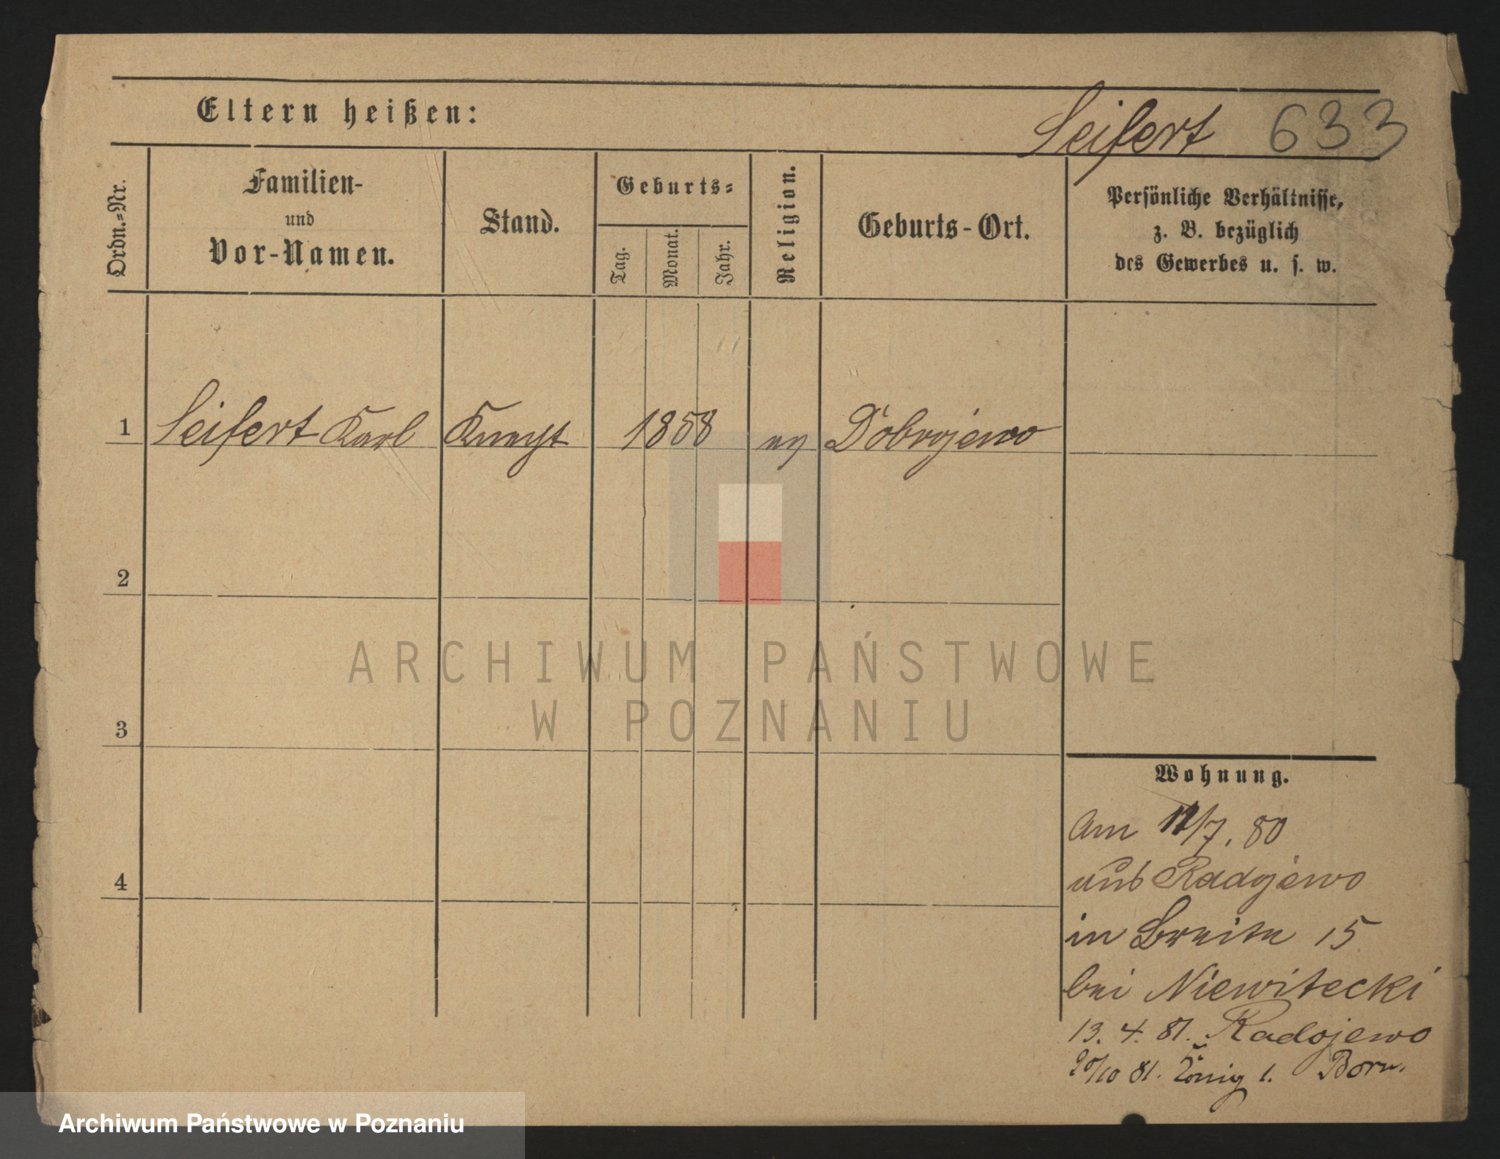 Eltern heißen:
Seifert 633
Ordn.=Nr.
Familien-
und
Vor-Namen.
Stand.
Geburts=
Tag.
Monat.
Jahr.
Religion.
Geburts-Ort.
Persönliche Verhältnisse,
z. B. bezüglich
des Gewerbes u. s. w.
1 Seifert Karl Knecht 1858 ev Dobrojewo
2
3
4
Wohnung.
Am 11/7. 80
aus Radojewo
in Breite 15
bei Niewitecki
13. 4. 81. Radojewo
20/10 81. König 1. Born.
ARCHIWUM PAŃSTWOWE
W POZNANIU
Archiwum Państwowe w Poznaniu